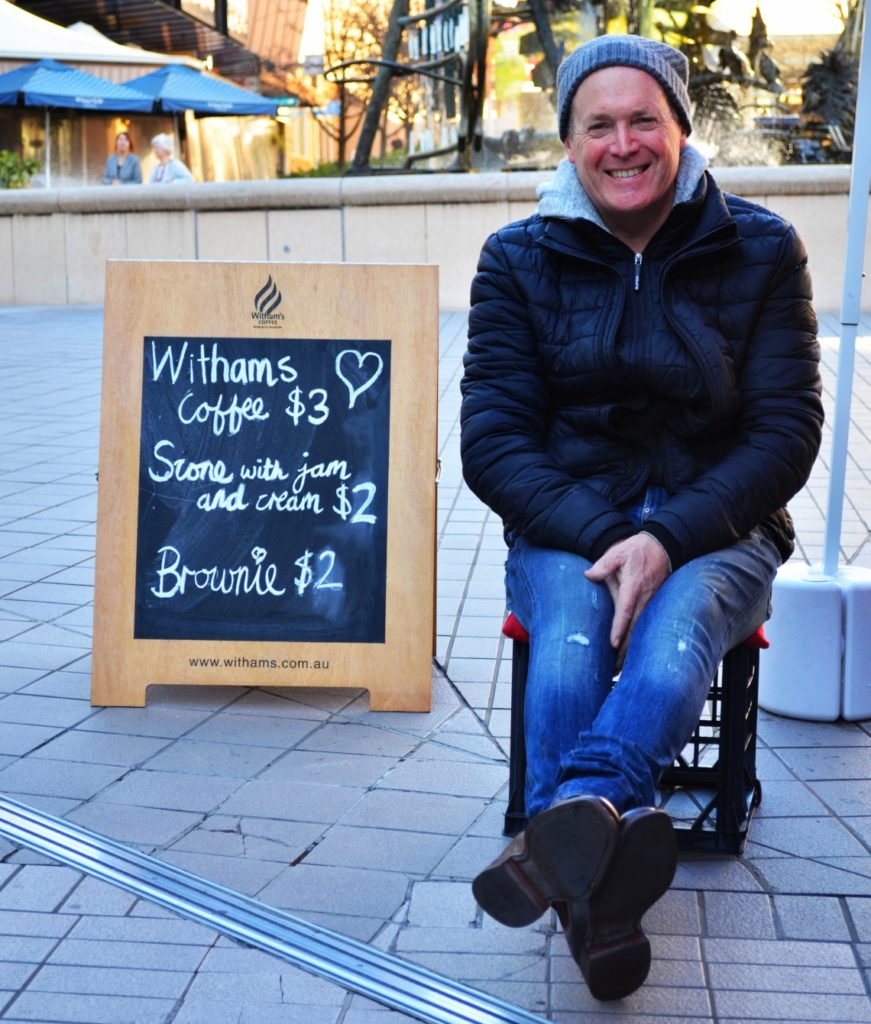 Witham's
COFFEE
Withams
Coffee $3
Scone with jam
and cream $2
Brownie $2
www.withams.com.au